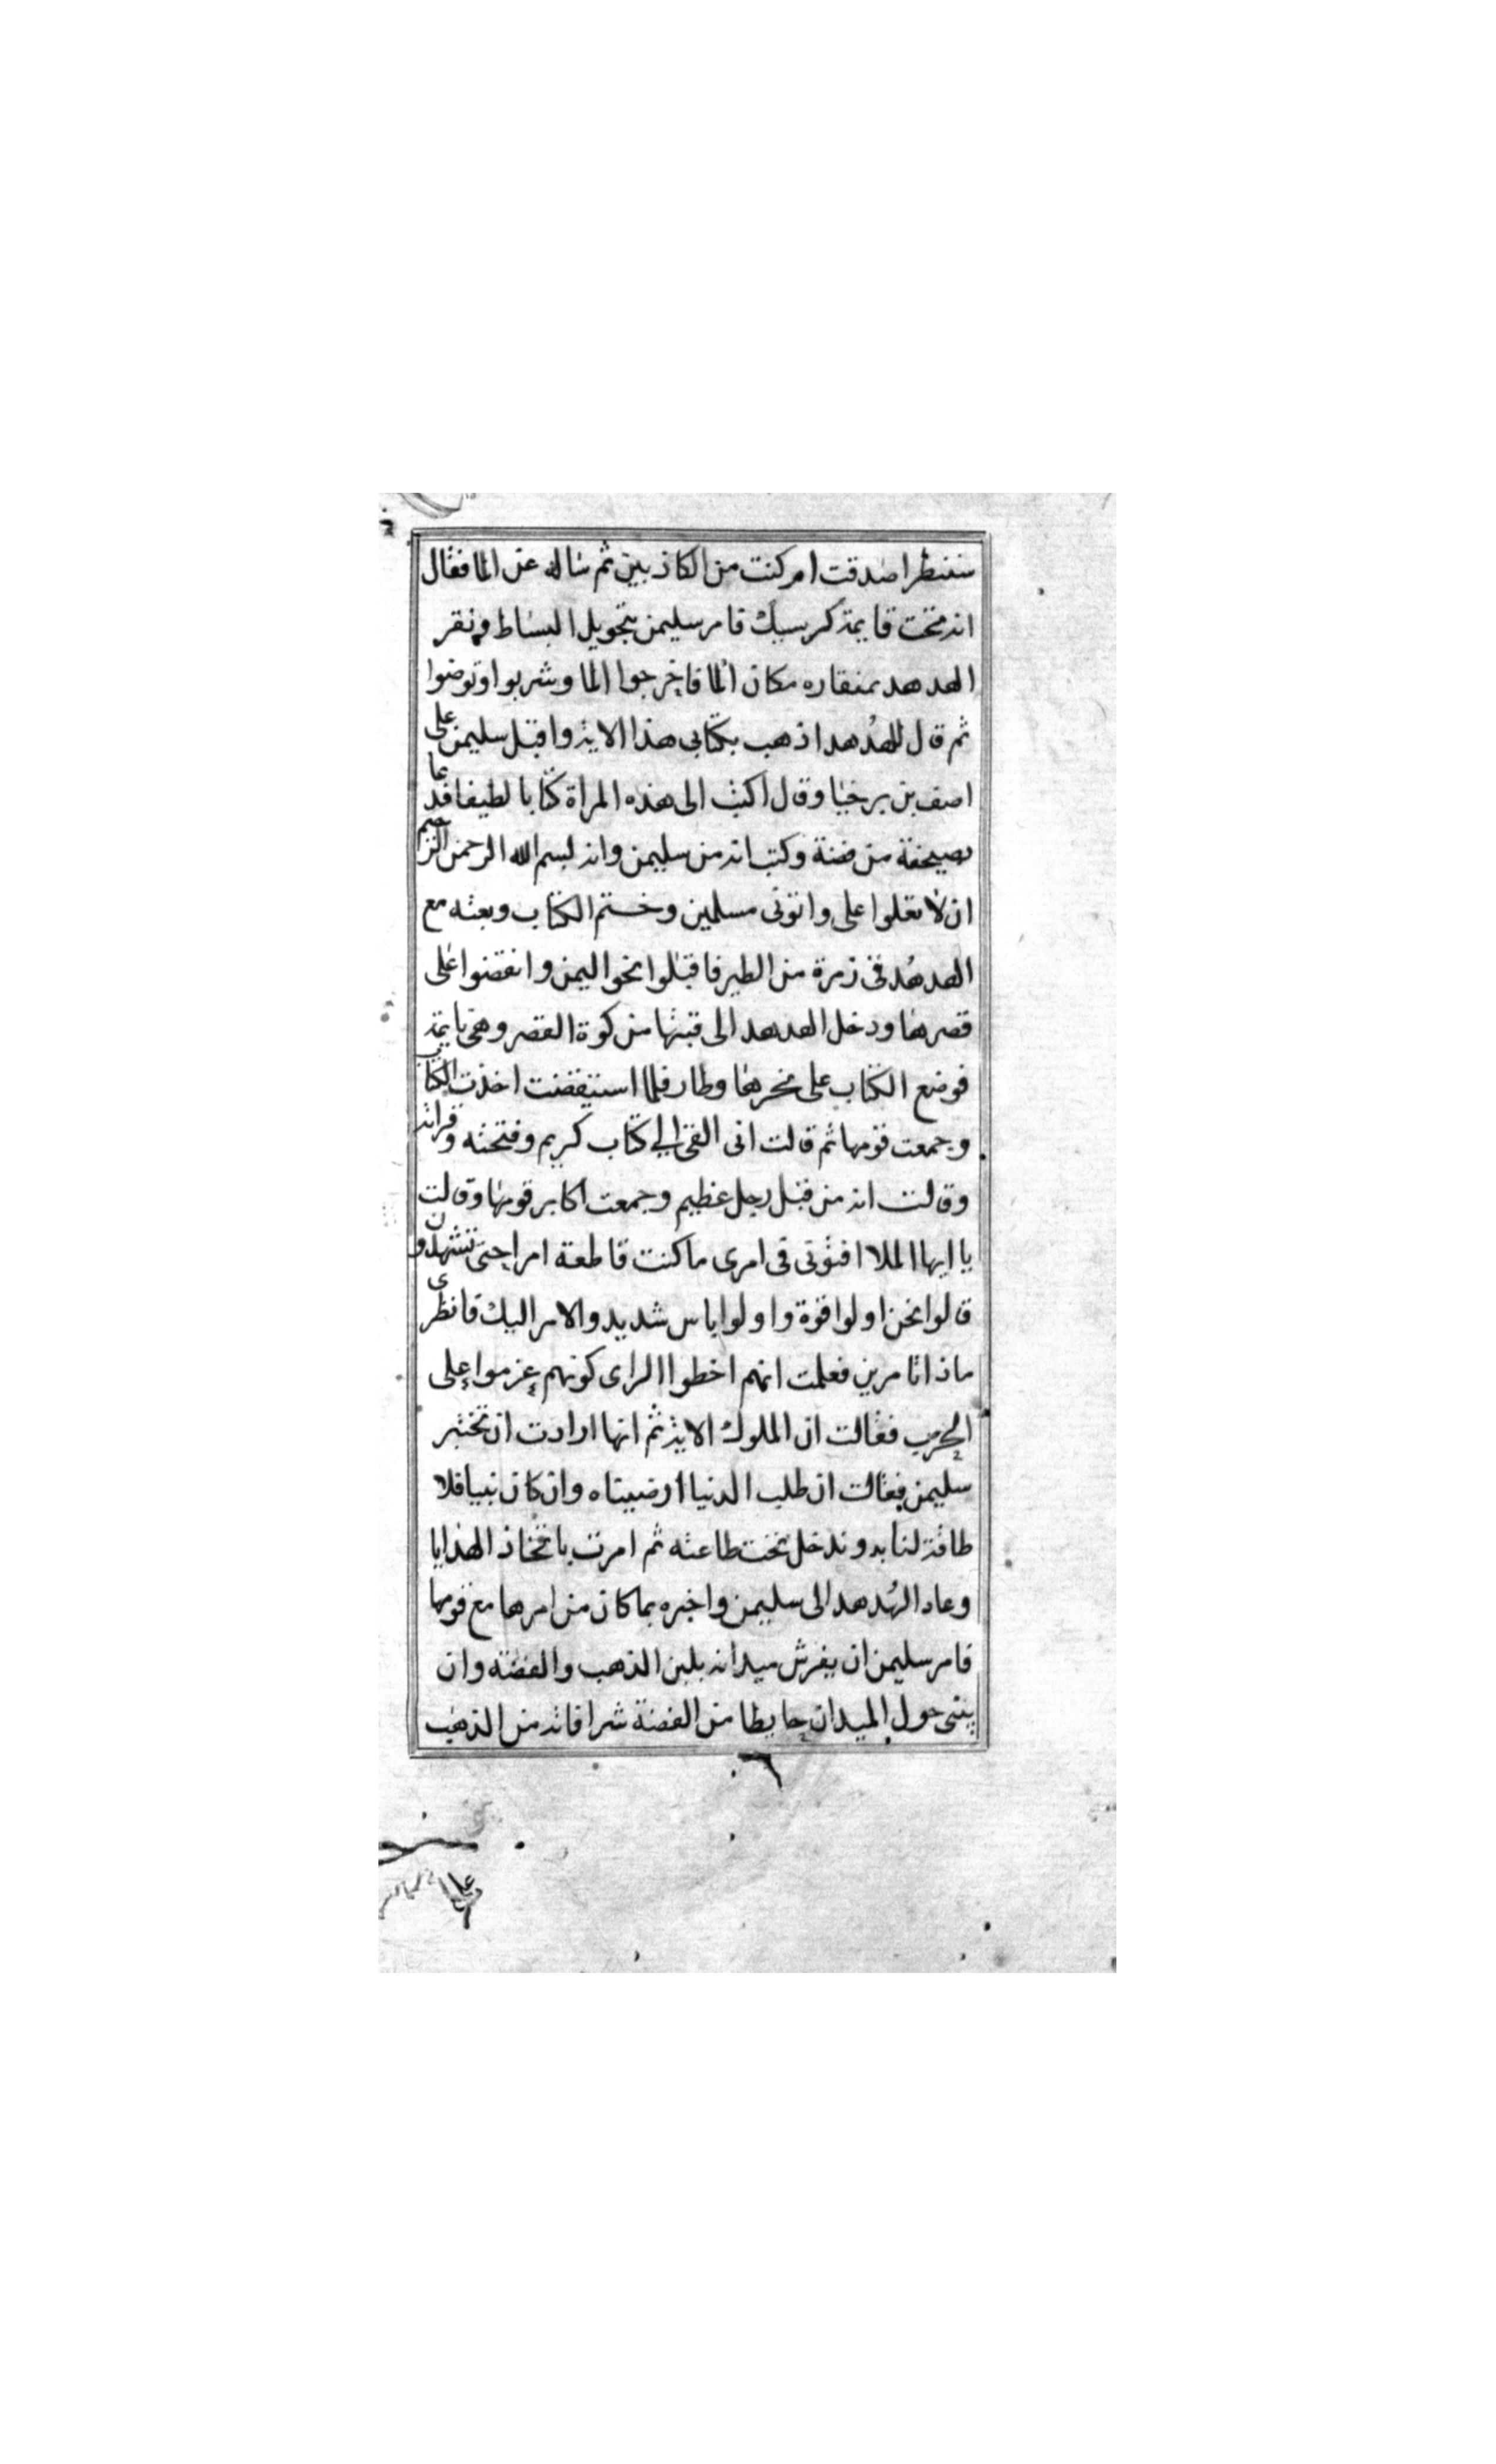 سننظر اصدقت ام كنت من الكاذبين ثم ساله عن الما فقال
انه تحت قايمة كرسيك فامر سليمن بتحويل البساط ونقر
الهدهد بمنقاره مكان الما فاخرجوا الما وشربوا وتوضوا
ثم قال للهدهد اذهب بكتابي هذا الاية واقبل سليمن على
اصف بن برخيا وقال اكتب الى هذه المراة كتابا لطيفا فدعا
بصحيفة من فضة وكتب انه من سليمن وانه بسم الله الرحمن الرحيم
ان لا تعلوا على واتونى مسلمين وختم الكتاب وبعثه مع
الهدهد فى زمرة من الطير فاقبلوا نحو اليمن وانقضوا على
قصرها ودخل الهدهد الى قبتها من كوة القصر وهى نايمة
فوضع الكتاب على نحرها وطار فلما استيقضت اخذت الكتاب
وجمعت قومها ثم قالت انى القى الي كتاب كريم وفتحته وقراته
وقالت انه من قبل رجل عظيم وجمعت اكابر قومها وقالت
يا ايها الملا افتونى فى امرى ما كنت قاطعة امرا حتى تشهدون
قالوا نحن اولوا قوة واولوا باس شديد والامر اليك فانظرى
ماذا تامرين فعلمت انهم اخطوا الراى كونهم عزموا على
الحرب فقالت ان الملوك الاية ثم انها ارادت ان تختبر
سليمن فقالت ان طلب الدنيا ارضيناه وان كان نبيا فلا
طاقة لنا به وندخل تحت طاعته ثم امرت باتخاذ الهدايا
وعاد الهدهد الى سليمن واخبره بما كان من امرها مع قومها
فامر سليمن ان يفرش ميدانه بلبن الذهب والفضة وان
يبنى حول الميدان حايطا من الفضة شرافاته من الذهب